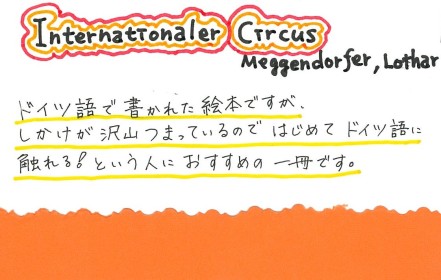 Internationaler Circus
Meggendorfer, Lothar
ドイツ語で書かれた絵本ですが、
しかけが沢山つまっているので はじめて ドイツ語に
触れる!という人に おすすめの 一冊です。